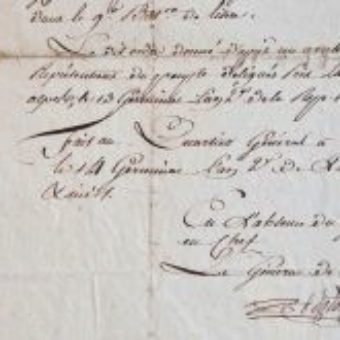 dans le 9e Bat.on de
Le dit ordre donné d'après un
Représentans du peuple délégués Près
le 13 Germinal L'an 2e de la Rep
fait au Quartier Général à
le 14 Germinal L'an 2e de la
En L'absence du
en Chef
Le Général de